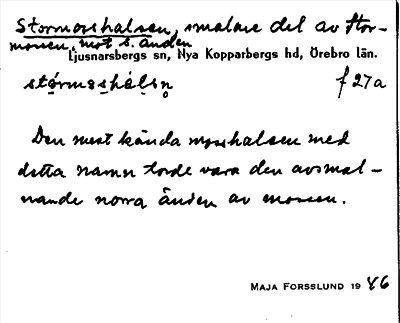 Stormosshalsen, smalare del av Stor-
mossen, mot s. änden
Ljusnarsbergs sn, Nya Kopparbergs hd, Örebro län.
stórmoshálsn̥ f 27a
Den mest kända mosshalsen med
detta namn torde vara den avsmal-
nande norra änden av mossen.
MAJA FORSSLUND 19 46